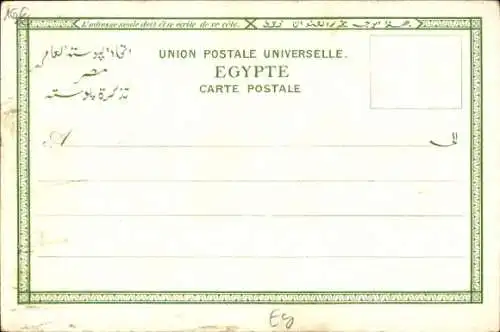 L'adresse seule doit être écrite de ce côté.
UNION POSTALE UNIVERSELLE.
EGYPTE
CARTE POSTALE
اتحاد البوسته العام
مصر
تذكرة بوسته
A
الى
Eg